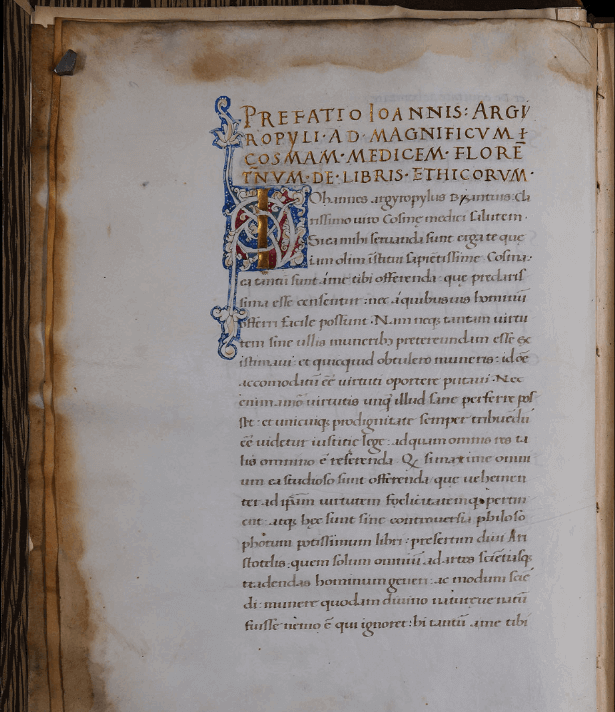 PREFATIO IOANNIS: ARGI
ROPYLI· AD· MAGNIFICVM
COSMAM· MEDICEM· FLORĒ
TNVM· DE· LIBRIS· ETHICORVM·
Iohannes argyropylus Cla
rissimo uiro Cosme medici salutem·
Si ea mihi seruanda sunt erga te que
iam olim īstitui sapiētissime Cosma·
ea tantū sunt ame tibi offerenda: que preclaris
sima esse censentur: nec aquibusuis hominū
offerri facile possunt· Nam neq; tantam uirtu
tem sine ullis muneribꝫ pretereundam esse ex
istimaui: et quicquid obtulero muneris: id
accomodatū eē uirtuti oportere putaui· Nec
enim animo uirtutis unq̄ illud sane perferre pos
set: et unicuiq; prodignitate semper tribuēdū
eē uidetur iustitie lege: adquam omnis res ta
lis omnino ē referenda· maxime omni
um ea studioso sunt offerenda que uehemen
ter ad ip̄am uirtutem fęlicitatemq; pertin
ent: atq; hęc sunt sine controuersia philoso
phorum potissimum libri: presertim diui Ari
stotelis: quem solum omniū ad artes sciētiasq;
tradendas hominum generi: ac modum scie
di: munere quodam diuino natū
fuisse nemo ē qui ignoret: hi tantū ame tibi